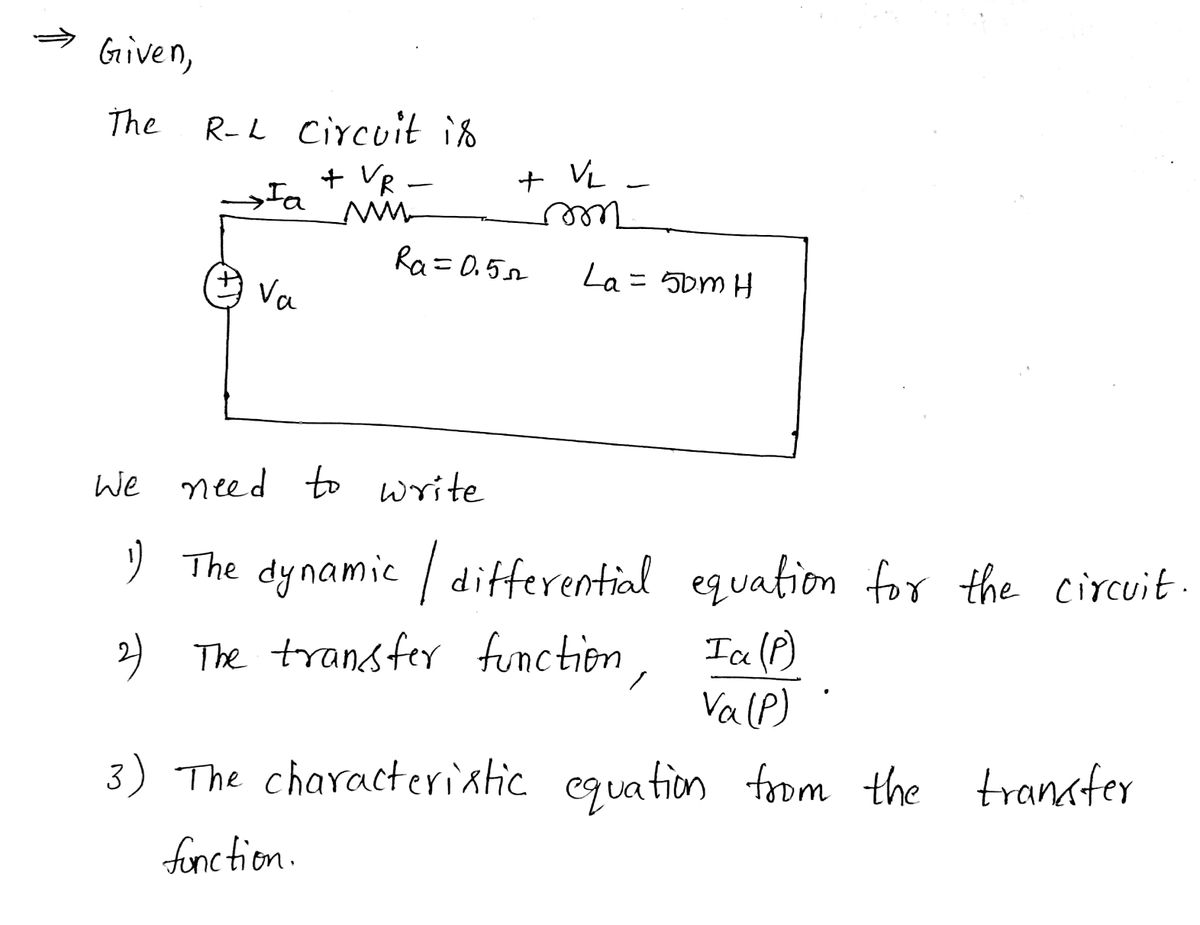 ⇒ Given,
The R-L Circuit is
→Ia + VR - + VL -
Ra = 0.5Ω La = 50m H
+ - Va
We need to write
1) The dynamic / differential equation for the circuit.
2) The transfer function, Ia(P)
Va(P) .
3) The characteristic equation from the transfer
function.